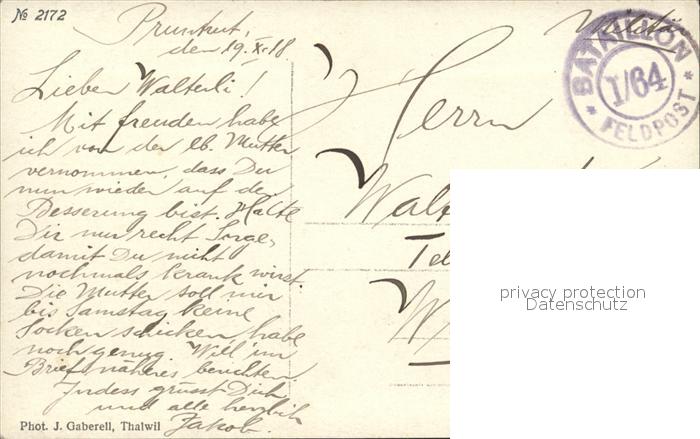 № 2172
Pruntrut,
den 19. X. 18.
Lieben Walterli!
Mit freuden habe
ich von der lb. Mutter
vernommen, dass Du
nun wieder auf der
Besserung bist. Halte
Dir nur recht Sorge,
damit Du nicht
nochmals krank wirst.
Die Mutter soll mir
bis Samstag keine
Socken schicken, habe
noch genug. Will im
Brief näheres berichten.
Indess grüsst Dich
und alle herzlich
Jakob.
Phot. J. Gaberell, Thalwil
Militär
BATAILLON
I/64
* FELDPOST *
Herrn
Walt
Tel
W
privacy protection
Datenschutz